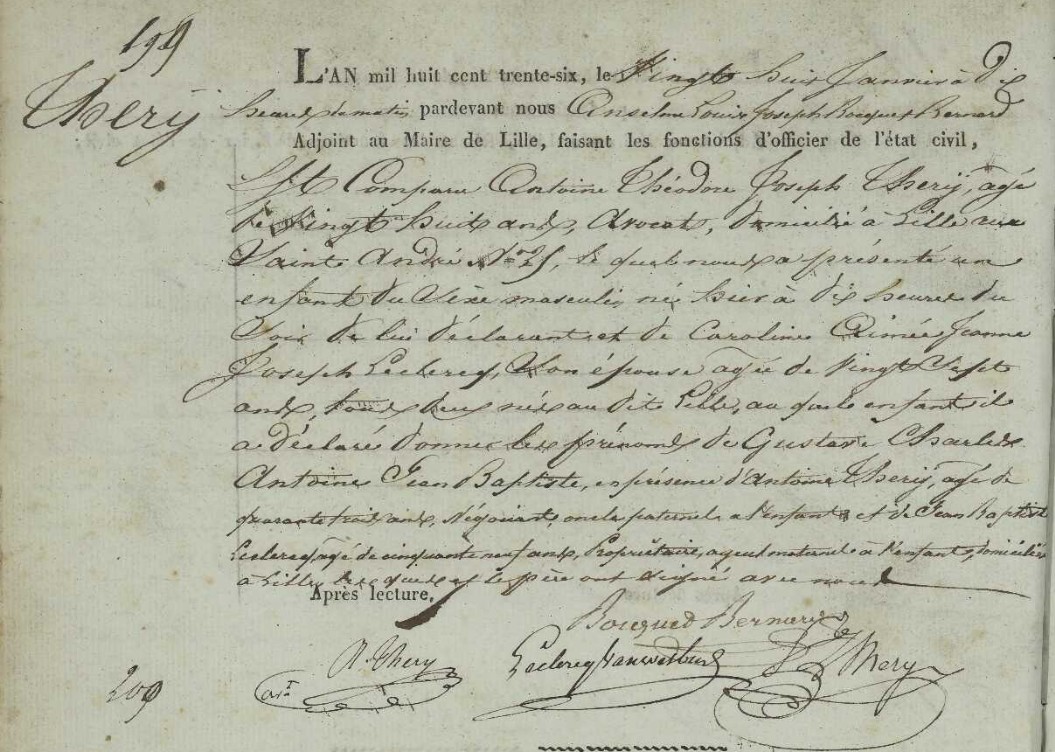 199
Thery
L'AN mil huit cent trente-six, le Vingt huit Janvier à dix
heures du matin pardevant nous Anselme Louis Joseph Bocquet Bernard
Adjoint au Maire de Lille, faisant les fonctions d'officier de l'état civil,
Est Comparu Antoine Théodore Joseph Thery, agé
de Vingt huit ans, Avocat, domicilié à Lille rue
Saint André N° 25, le quel nous a présenté un
enfant du Sexe masculin, né hier à dix heures du
Soir de lui déclarant et de Caroline Aimée Jeanne
Joseph Leclercq, Son épouse agée de Vingt Sept
ans, tous deux nés au dit Lille, au quel enfant il
a déclaré donner les prénoms de Gustave Charles
Antoine Jean Baptiste, en présence d'Antoine Thery, agé de
quarante trois ans, Négociant, oncle paternel a l'enfant et de Jean Baptiste
Leclercq, agé de cinquante neuf ans, Propriétaire, ayeul maternel à l'enfant, domiciliés
a Lille, les quels et le père ont signé avec nous
Après lecture.
Bocquet Bernard
A. Thery Leclercq T Thery
209